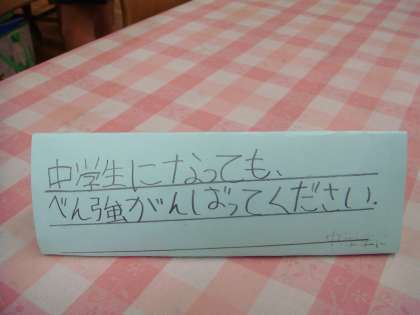 中学生になっても、
べん強がんばってください.